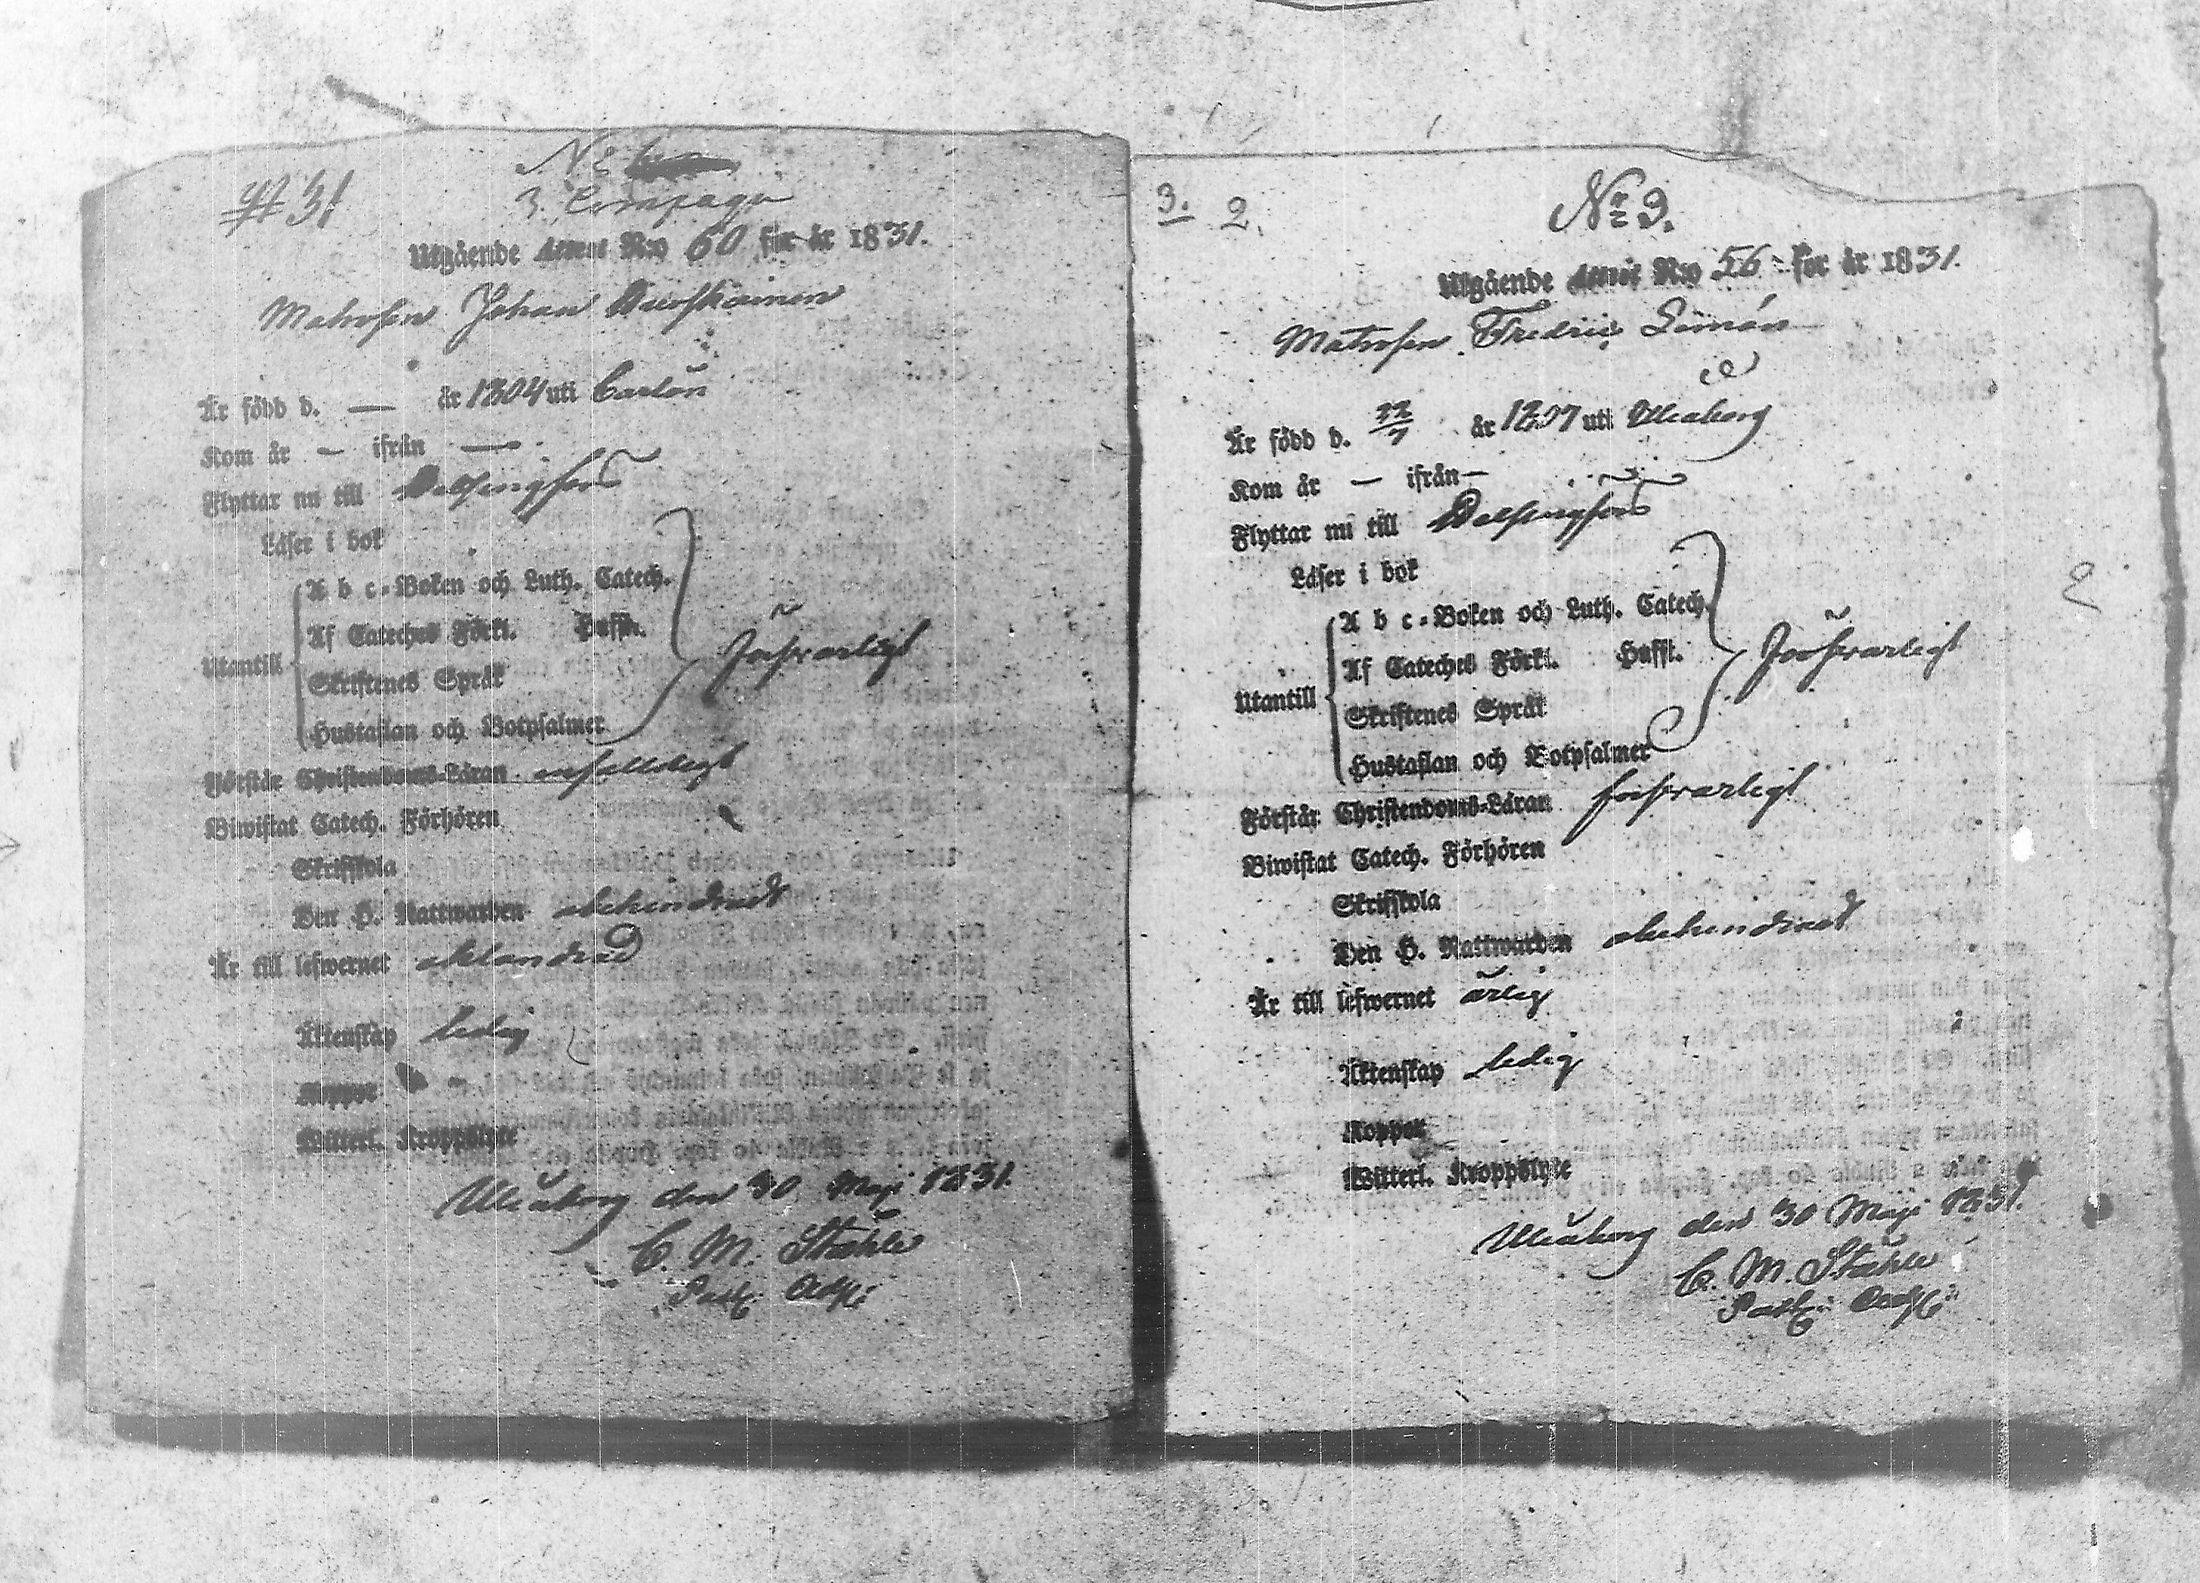 31
No
3. Compagn
Utgående Attest N:o 60 för år 1831.
Matrosen Johan
Är född d. — år 1804 uti Carlön
Kom år — ifrån —
Flyttar nu till Helsingfors
Läser i bok
A b c-Boken och Luth. Catech.
Af Cateches Förkl. Hufst.
Utantill
försvarligt
Skriftenes Språk
Hustaflan och Botpsalmer
Förstår Christendoms-Läran enfalldeligt
Biwistat Catech. Förhören
Skriftskola
Den H. Nattwarden obehindradt
Är till lefwernet oklandrad
Äktenskap ledig
Koppor
Witterl. Kroppslyte
Uleåborg den 30 Maji 1831.
C. M. Ståhle
Past. Adj:
3. 2.
No 9.
Utgående Attest N:o 56 för år 1831.
Matrosen Fredric Simón
Är född d. 22/7 år 1807 uti Uleåborg
Kom år — ifrån —
Flyttar nu till Helsingfors
Läser i bok
A b c-Boken och Luth. Catech.
Af Cateches Förkl. Hufst.
försvarligt
Utantill
Skriftenes Språk
Hustaflan och Botpsalmer
Förstår Christendoms-Läran försvarligt
Biwistat Catech. Förhören
Skriftskola
Den H. Nattwarden obehindradt
Är till lefwernet ärlig
Äktenskap ledig
Koppor
Witterl. Kroppslyte
Uleåborg den 30 Maji 1831.
C. M. Ståhle
Past: Adj: